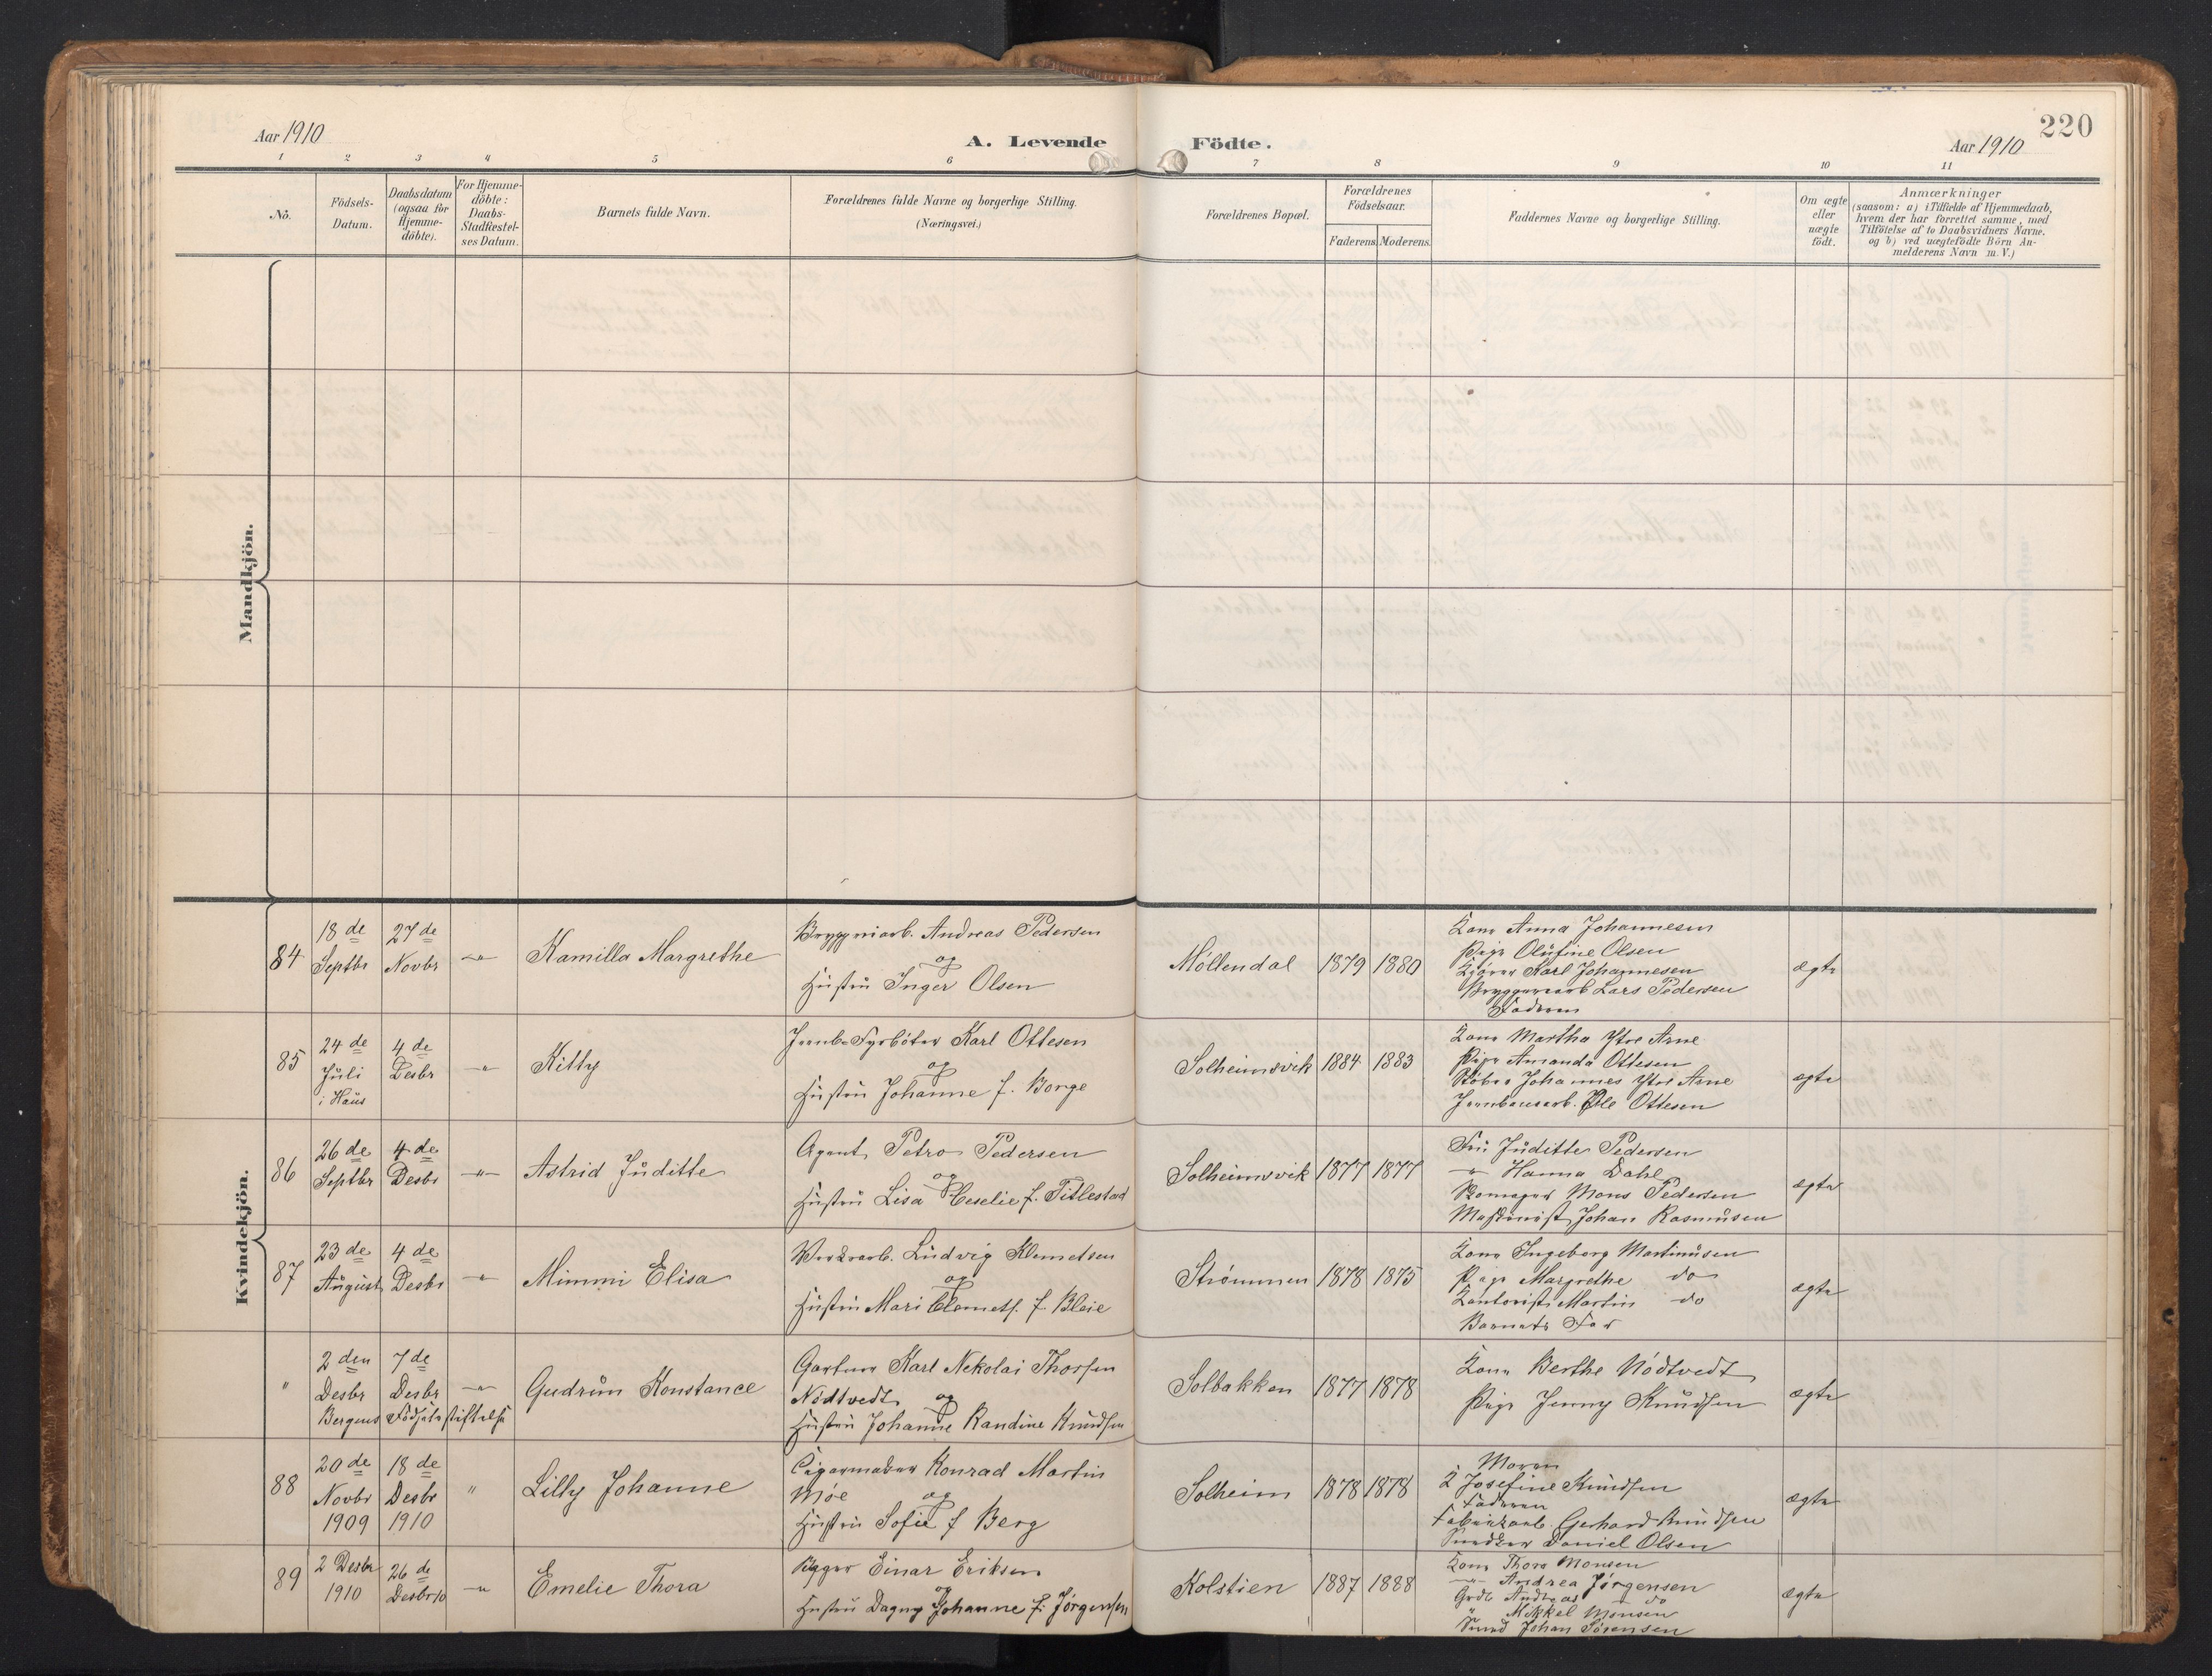 220
Aar 1910
A. Levende Födte.
Aar 1910
1 2 3 4 5 6 7 8 9 10 11
Nô.
Födsels-
Datum.
Daabsdatum
(ogsaa for
Hjemme-
döbte).
For Hjemme-
döbte:
Daabs-
Stadfæstel-
ses Datum.
Barnets fulde Navn.
Forældrenes fulde Navne og borgerlige Stilling.
(Næringsvei.)
Forældrenes Bopæl.
Forældrenes
Födselsaar.
Faderens. Moderens.
Faddernes Navne og borgerlige Stilling.
Om ægte
eller
uægte
födt.
Anmærkninger
(saasom: a) i Tilfælde af Hjemmedaab,
hvem der har forrettet samme, med
Tilföielse af to Daabsvidners Navne.
og b) ved uægtefödte Börn An-
melderens Navn m. V.)
Mandkjön.
Kvindekjön.
84
18 de
Septbr
27 de
Novbr
"
Kamilla Margrethe
Bryggeriarb. Andreas Pedersen
og
Hustru Inger Olsen
Möllendal
1879
1880
Kone Anna Johannesen
Pige Olufine Olsen
Kjører Karl Johannesen
Bryggeriarb Lars Pedersen
Faderen
ægte
85
24 de
Juli
i Haus
4 de
Desbr
"
Kitty
Jernb. Fyrböter Karl Ottesen
og
Hustru Johanne f. Borge
Solheimsvik
1884
1883
Kone Martha Ytre Arne
Pige Amanda Ottesen
Støber Johannes Ytre Arne
Jernbanearb. Ole Ottesen
ægte
86
26 de
Septbr
4 de
Desbr
"
Astrid Juditte
Agent Petro Pedersen
og
Hustru Lisa Ceselie f. Titlestad
Solheimsvik
1877
1877
Fru Juditte Pedersen
" Hanna Dahl
Mons Pedersen
Maskinist Johan Rasmusen
ægte
87
23 de
August
4 de
Desbr
"
Mimmi Elisa
Verksarb. Ludvig Klemetsen
og
Hustru Mari Clemets. f. Bleie
Strömmen
1878
1875
Kone Ingeborg Martinusen
Pige Margrethe do
Kontorist Martin do
Barnets Far
ægte
"
2 den
Desbr
7 de
Desbr
Bergens Födselsstiftelse
"
Gudrun Konstance
Gartner Karl Nekolai Thorsen
Nödtvedt
og
Hustru Johanne Randine Knudsen
Solbakken
1877
1878
Kone Berthe Nödtvedt
Pige Jenny Knudsen
ægte
88
20 de
Novbr
1909
18 de
Desbr
1910
"
Lilly Johanne
Cigarmaker Konrad Martin
Möe
og
Hustru Sofie f Berg
Solheim
1878
1878
Moren
K Josefine Knudsen
Faderen
Fabrikarb. Gerhard Knudsen
Snedker Daniel Olsen
ægte
89
2 Desbr
1910
26 de
Desbr 10
"
Emelie Thora
Rigger Einar Eriksen
og
Hustru Dagny Johanne f. Jörgensen
Kolstien
1887
1888
Kone Thora Monsen
" Andrea Jørgensen
Grdb Andreas do
" Mikkel Monsen
Smed Johan Sörensen
ægte